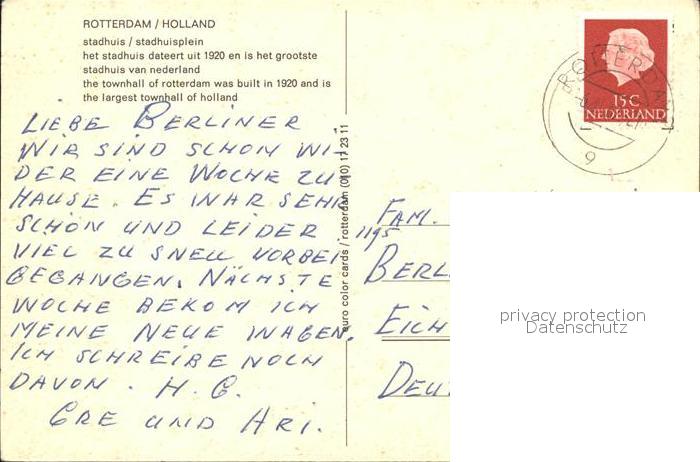 ROTTERDAM / HOLLAND
stadhuis / stadhuisplein
het stadhuis dateert uit 1920 en is het grootste
stadhuis van nederland
the townhall of rotterdam was built in 1920 and is
the largest townhall of holland
LIEBE BERLINER
WIR SIND SCHON WI-
DER EINE WOCHE ZU
HAUSE. ES WAR SEHR
SCHÖN UND LEIDER
VIEL ZU SNELL VORBEI
GEGANGEN. NÄCHSTE
WOCHE BEKOM ICH
MEINE NEUE WAGEN.
ICH SCHREIBE NOCH
DAVON. H. G.
GRE UND ARI.
euro color cards / rotterdam (010) 17 23 11
1195
15 C
NEDERLAND
ROTTERDAM
9
FAM.
BERL
EICH
DEU
privacy protection
Datenschutz